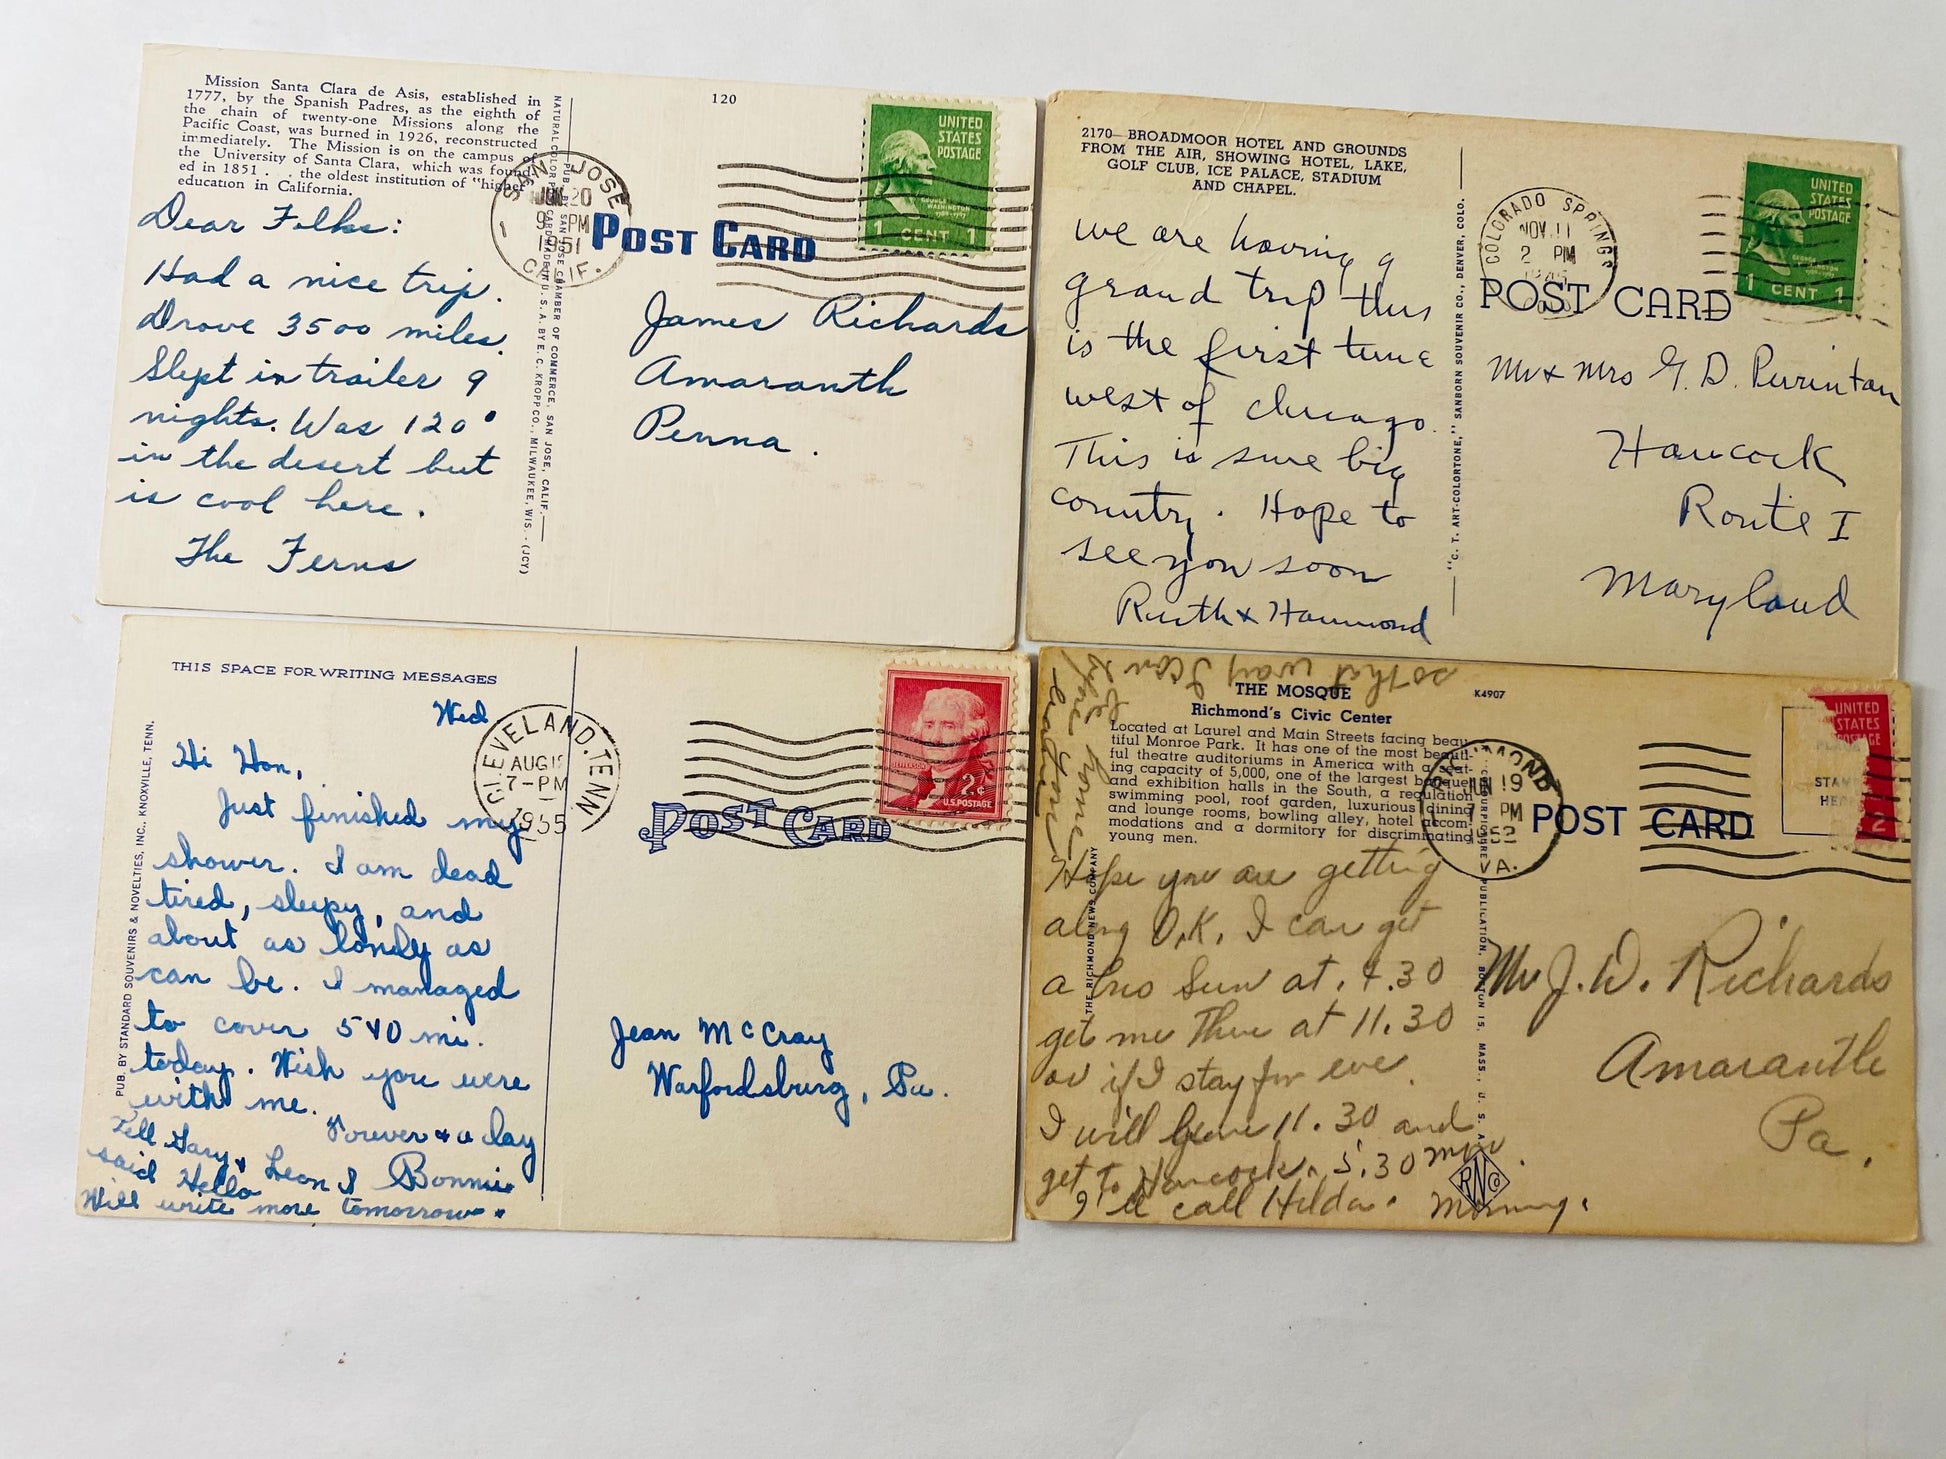 Mission Santa Clara de Asis, established in
1777, by the Spanish Padres, as the eighth of
the chain of twenty-one Missions along the
Pacific Coast, was burned in 1926, reconstructed
immediately. The Mission is on the campus of
the University of Santa Clara, which was found-
ed in 1851 . . the oldest institution of "higher"
education in California.
120
SAN JOSE
JUN 20
9 PM
1951
CALIF.
1
UNITED
STATES
POSTAGE
GEORGE
WASHINGTON
1 CENT 1
POST CARD
PUB. BY SAN JOSE CHAMBER OF COMMERCE, SAN JOSE, CALIF.
MADE IN U. S. A. BY E. C. KROPP CO., MILWAUKEE, WIS. - (JCY)
Dear Folks:
Had a nice trip.
Drove 3500 miles.
Slept in trailer 9
nights. Was 120°
in the desert but
is cool here.
The Ferns
James Richards
Amaranth
Penna.
2170—BROADMOOR HOTEL AND GROUNDS
FROM THE AIR, SHOWING HOTEL, LAKE,
GOLF CLUB, ICE PALACE, STADIUM
AND CHAPEL.
COLORADO SPRINGS
NOV 11
2 PM
UNITED
STATES
POSTAGE
1 CENT 1
POST CARD
"C. T. ART-COLORTONE," SANBORN SOUVENIR CO., DENVER, COLO.
we are having a
grand trip this
is the first time
west of chicago.
This is sure big
country. Hope to
see you soon
Ruth & Hammond
Mr & Mrs G. D.
Hancock
Route I
Maryland
THIS SPACE FOR WRITING MESSAGES
Wed
CLEVELAND, TENN.
AUG
7-PM
1955
JEFFERSON
2¢
U.S. POSTAGE
POST CARD
PUB. BY STANDARD SOUVENIRS & NOVELTIES, INC., KNOXVILLE, TENN.
Hi Hon,
Just finished my
shower. I am dead
tired, sleepy, and
about as lonely as
can be. I managed
to cover 540 mi.
today. Wish you were
with me.
Forever & a day
Bonnie
Tell Gary & Leon I
said Hello
Will write more tomorrow.
Jean McCray
Warfordsburg, Pa.
so that way I can
be home
before you
THE MOSQUE
Richmond's Civic Center
K4907
Located at Laurel and Main Streets facing beau-
tiful Monroe Park. It has one of the most beauti-
ful theatre auditoriums in America with a seat-
ing capacity of 5,000, one of the largest banquet
and exhibition halls in the South, a regulation
swimming pool, roof garden, luxurious dining
and lounge rooms, bowling alley, hotel accom-
modations and a dormitory for discriminating
young men.
RICHMOND
JUN 19
7 PM
1952
VA.
UNITED
STATES
POSTAGE
2
PLACE
STAMP
HERE
POST CARD
THE RICHMOND NEWS COMPANY
COLOURPICTURE PUBLICATION, BOSTON 15, MASS., U. S. A.
Hope you are getting
along O.K. I can get
a bus Sun at 4.30
get me There at 11.30
or if I stay for eve
I will leave 11.30 and
get to Hancock 5.30
I'll call Hilda. Morning.
RNCo
Mr J. W. Richards
Amaranth
Pa.